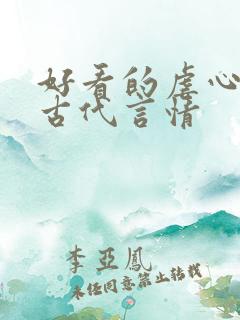 好看的虐心
古代言情
李亚鳳
未经同意禁止转载